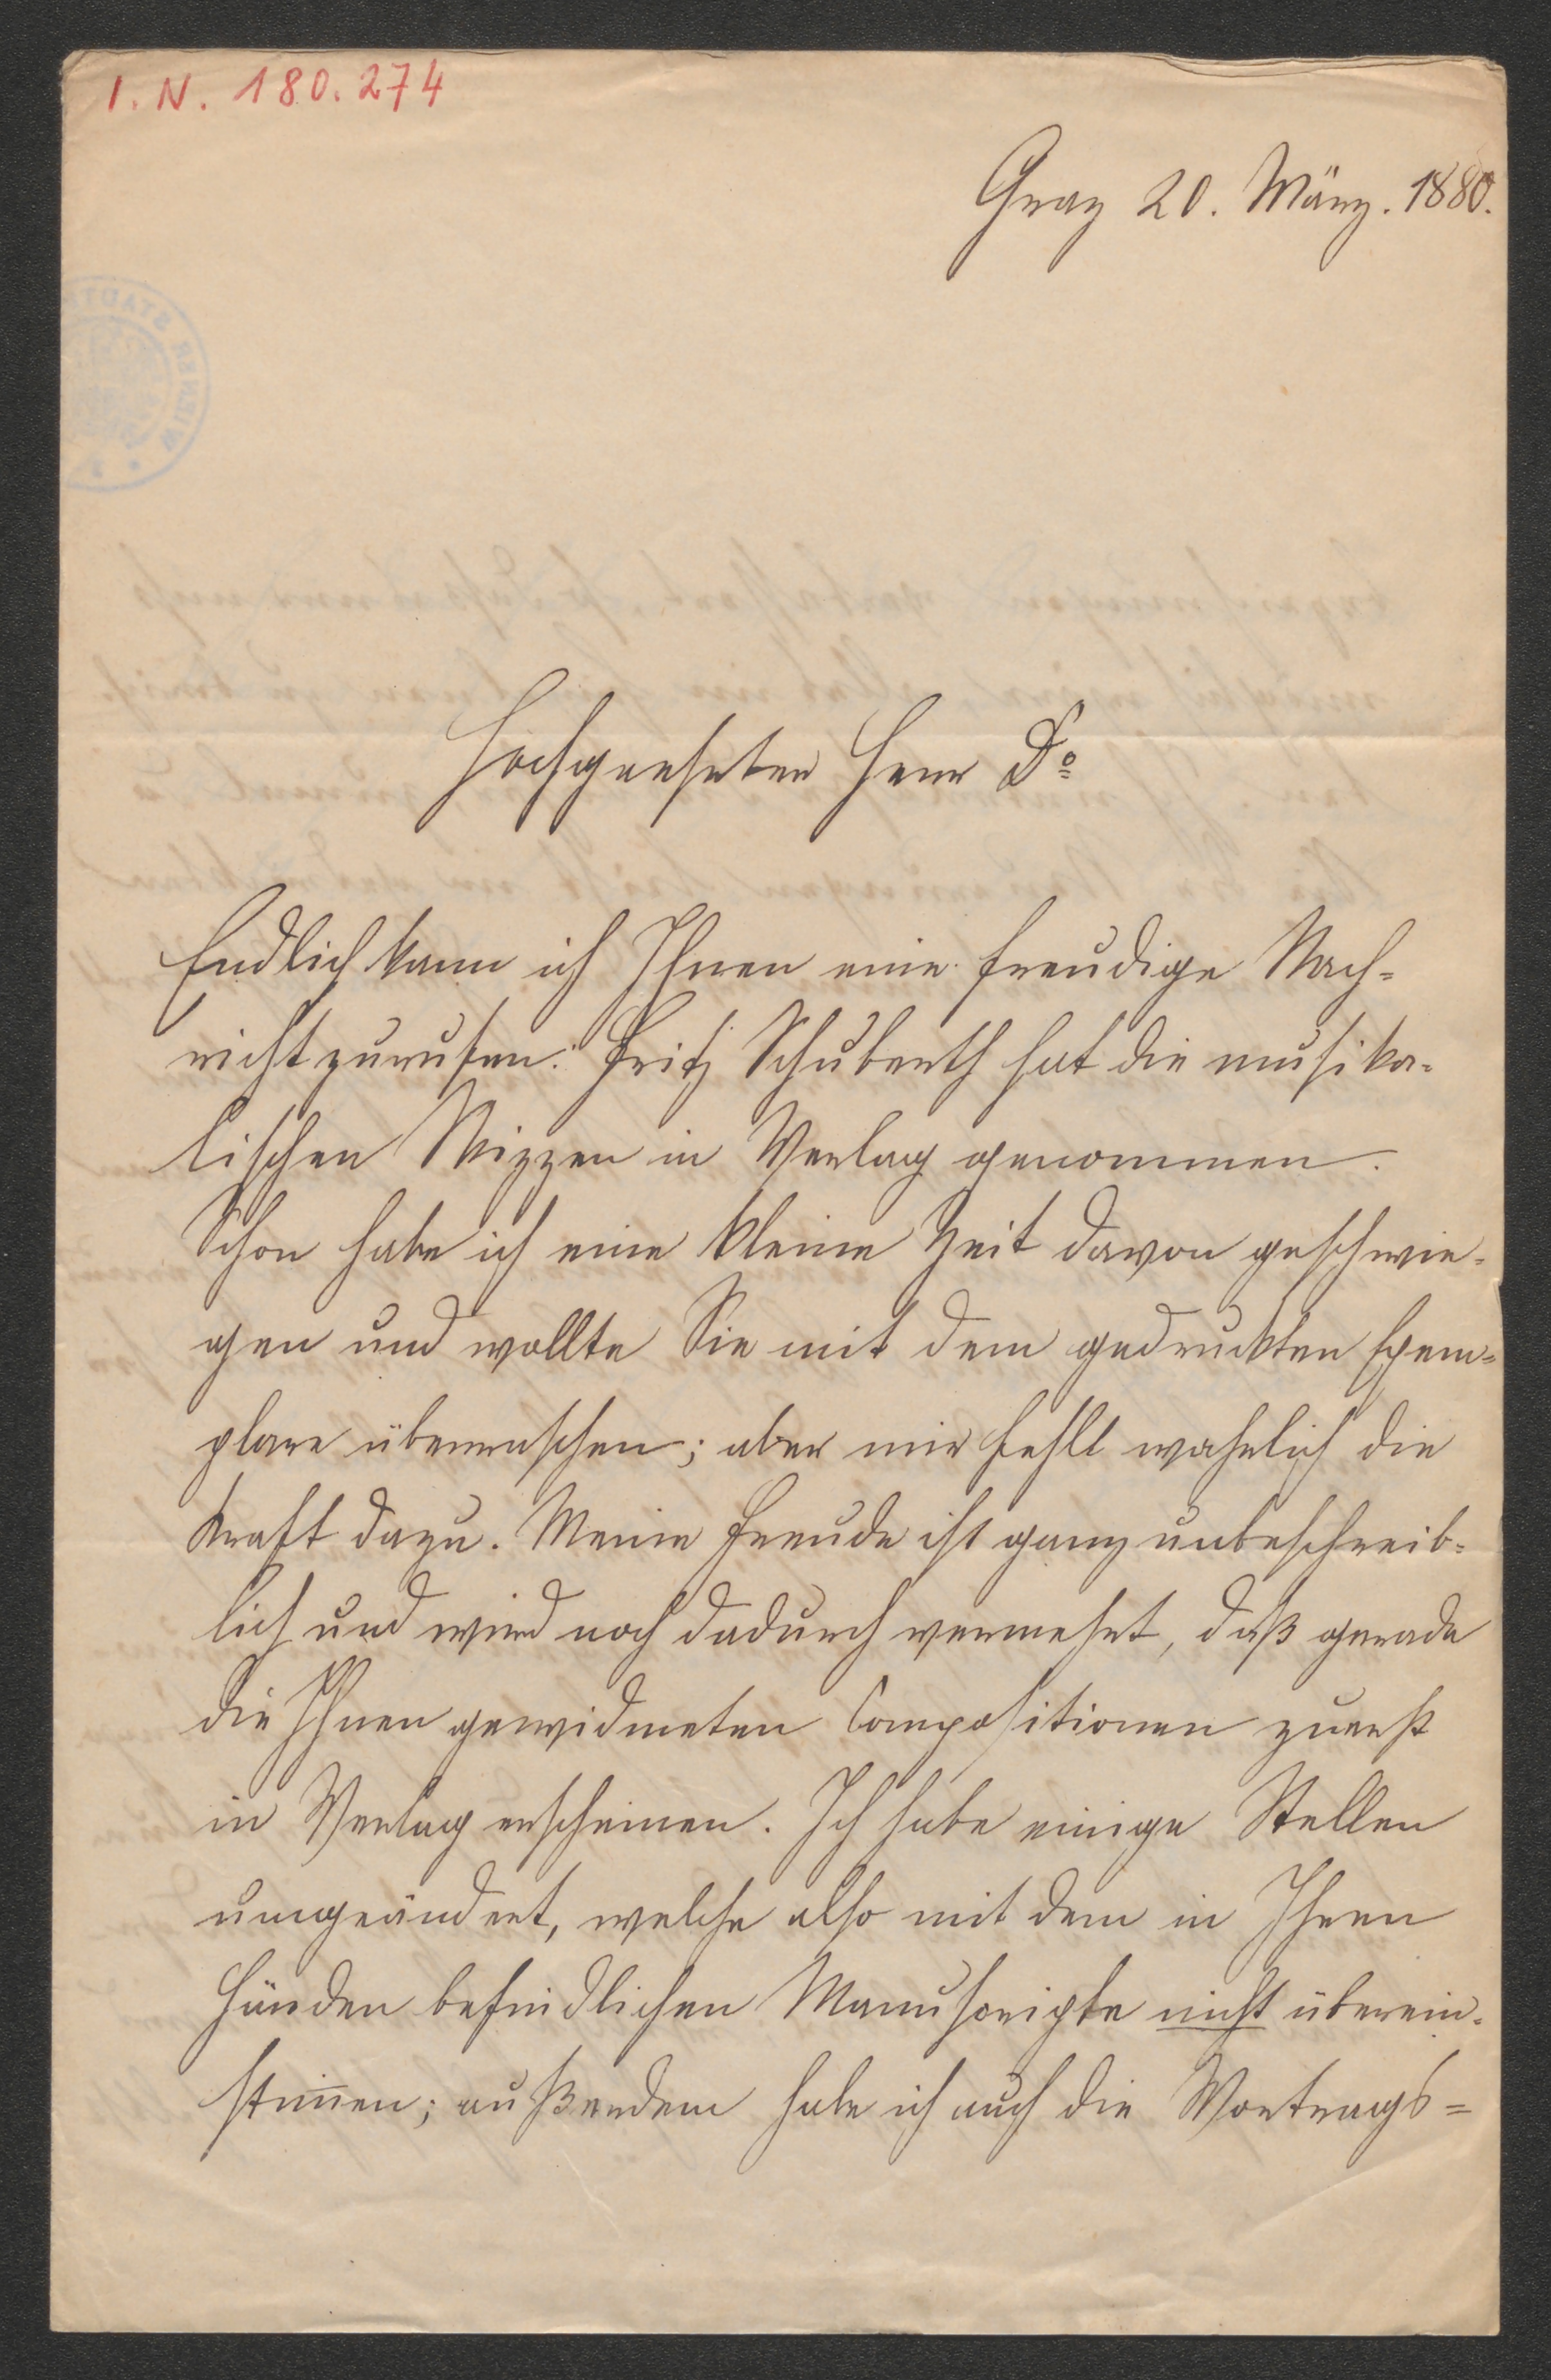 I. N. 180.274
Graz 20. März. 1880.
WIENER STADT
Hochgeehrter Herr Dº
Endlich kann ich Ihnen eine freudige Nach-
richt zurufen: Fritz Schuberth hat die musika-
lischen Skizzen in Verlag genommen.
Schon habe ich eine kleine Zeit davon geschwie-
gen und wollte Sie mit dem gedruckten Exem-
plare überraschen; aber mir fehlt wahrlich die
Kraft dazu. Meine Freude ist ganz unbeschreib-
lich und wird noch dadurch vermehrt, daß gerade
die Ihnen gewidmeten Compositionen zuerst
in Verlag erscheinen. Ich habe einige Stellen
umgeändert, welche also mit dem in Ihren
Händen befindlichen Manuscripte nicht überein-
stim̅en; außerdem habe ich auch die Vortrags-